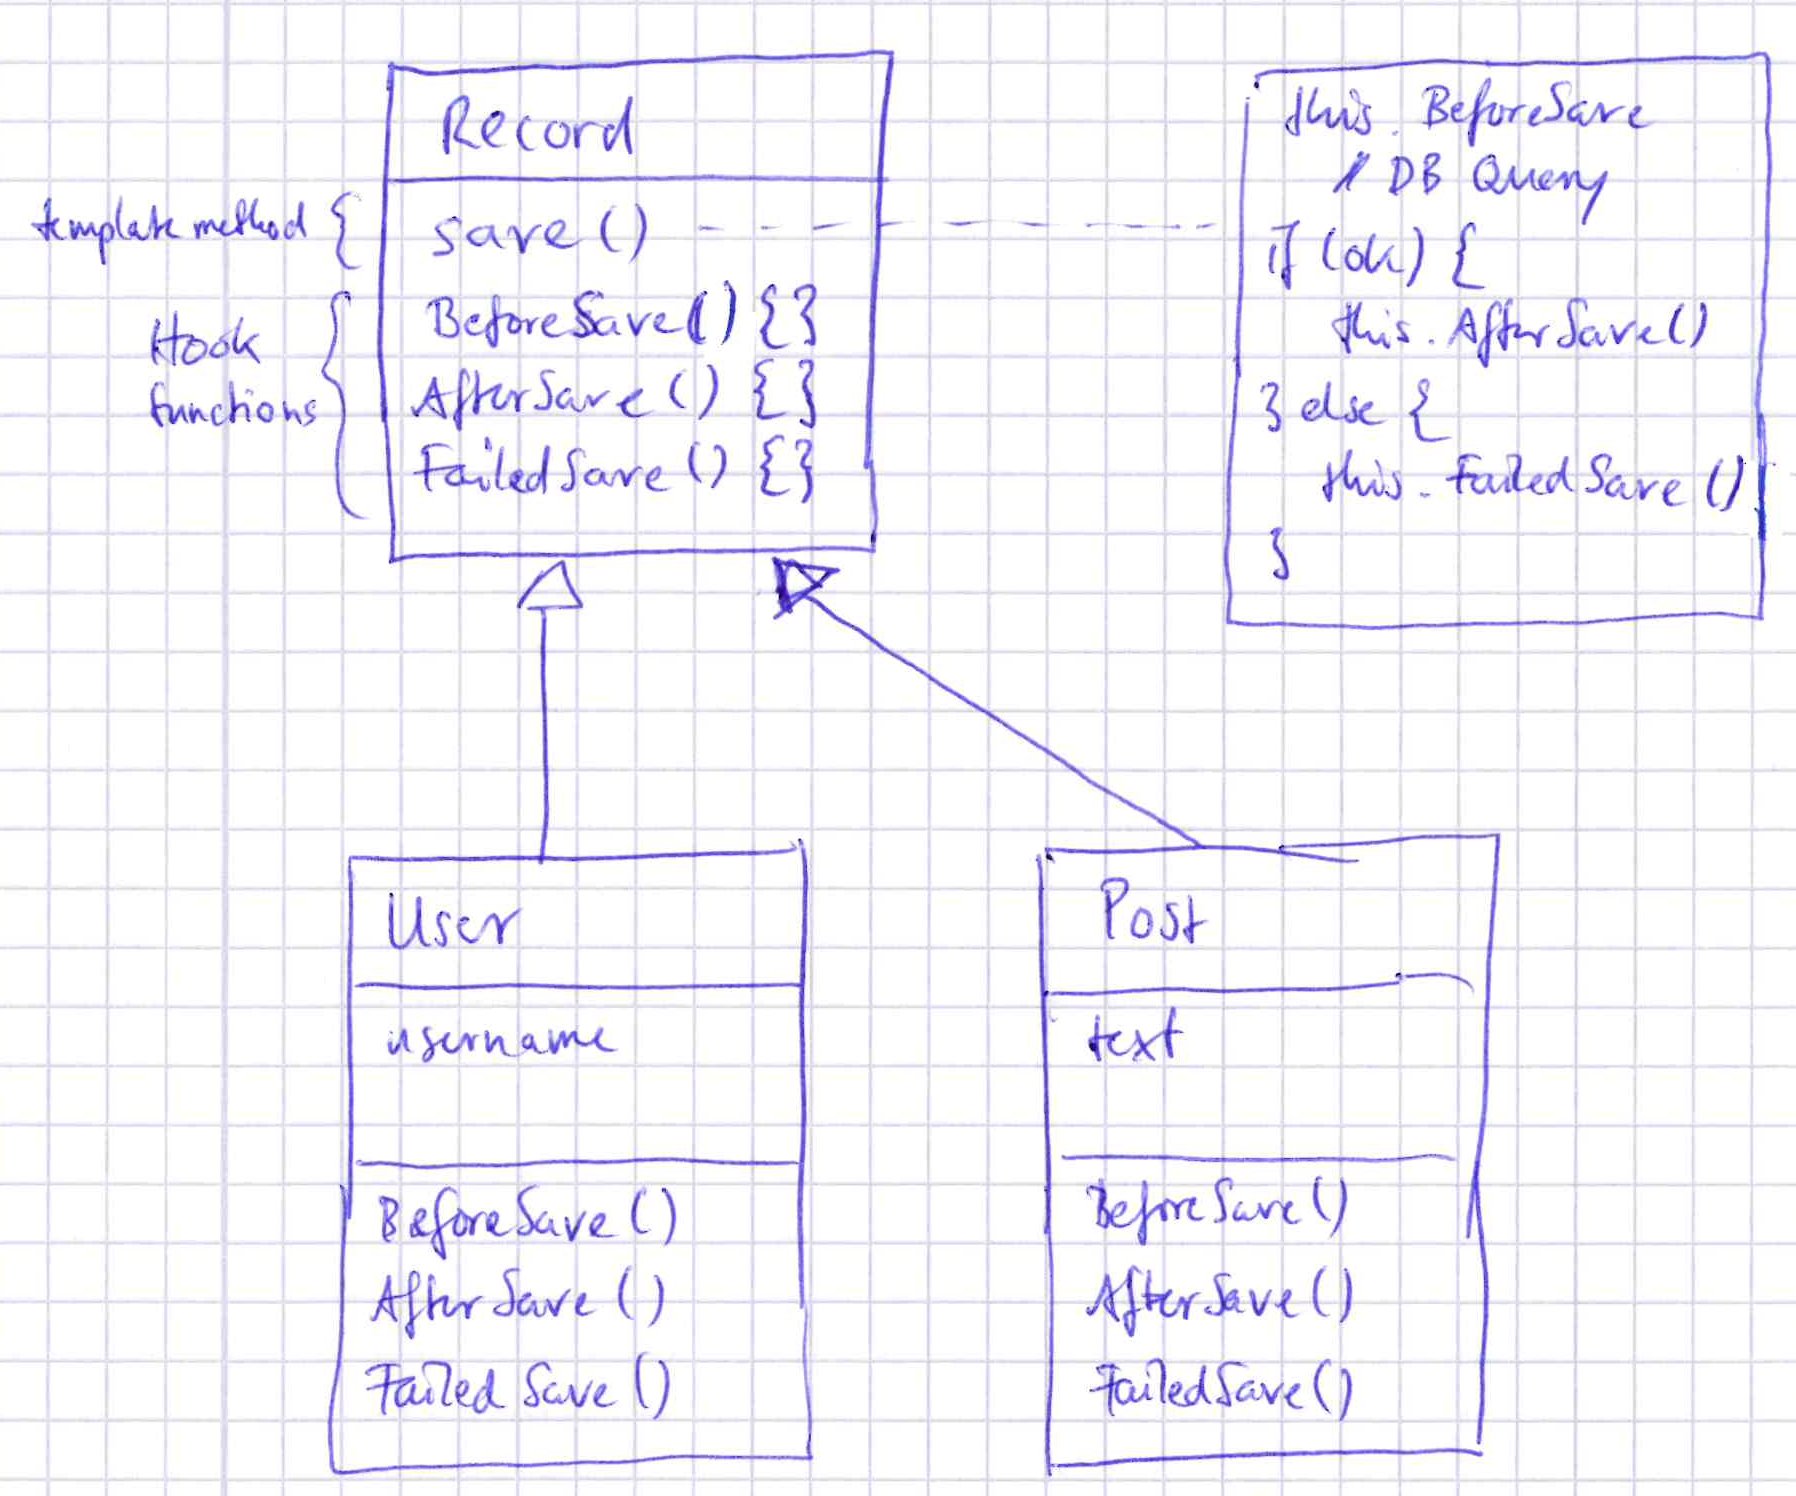 Record
template method {
save()
Hook
functions
{
BeforeSave() {}
AfterSave() {}
FailedSave() {}
this. BeforeSave
// DB Query
if (ok) {
this. AfterSave()
} else {
this. FailedSave()
}
User
username
BeforeSave()
AfterSave()
FailedSave()
Post
text
BeforeSave()
AfterSave()
FailedSave()